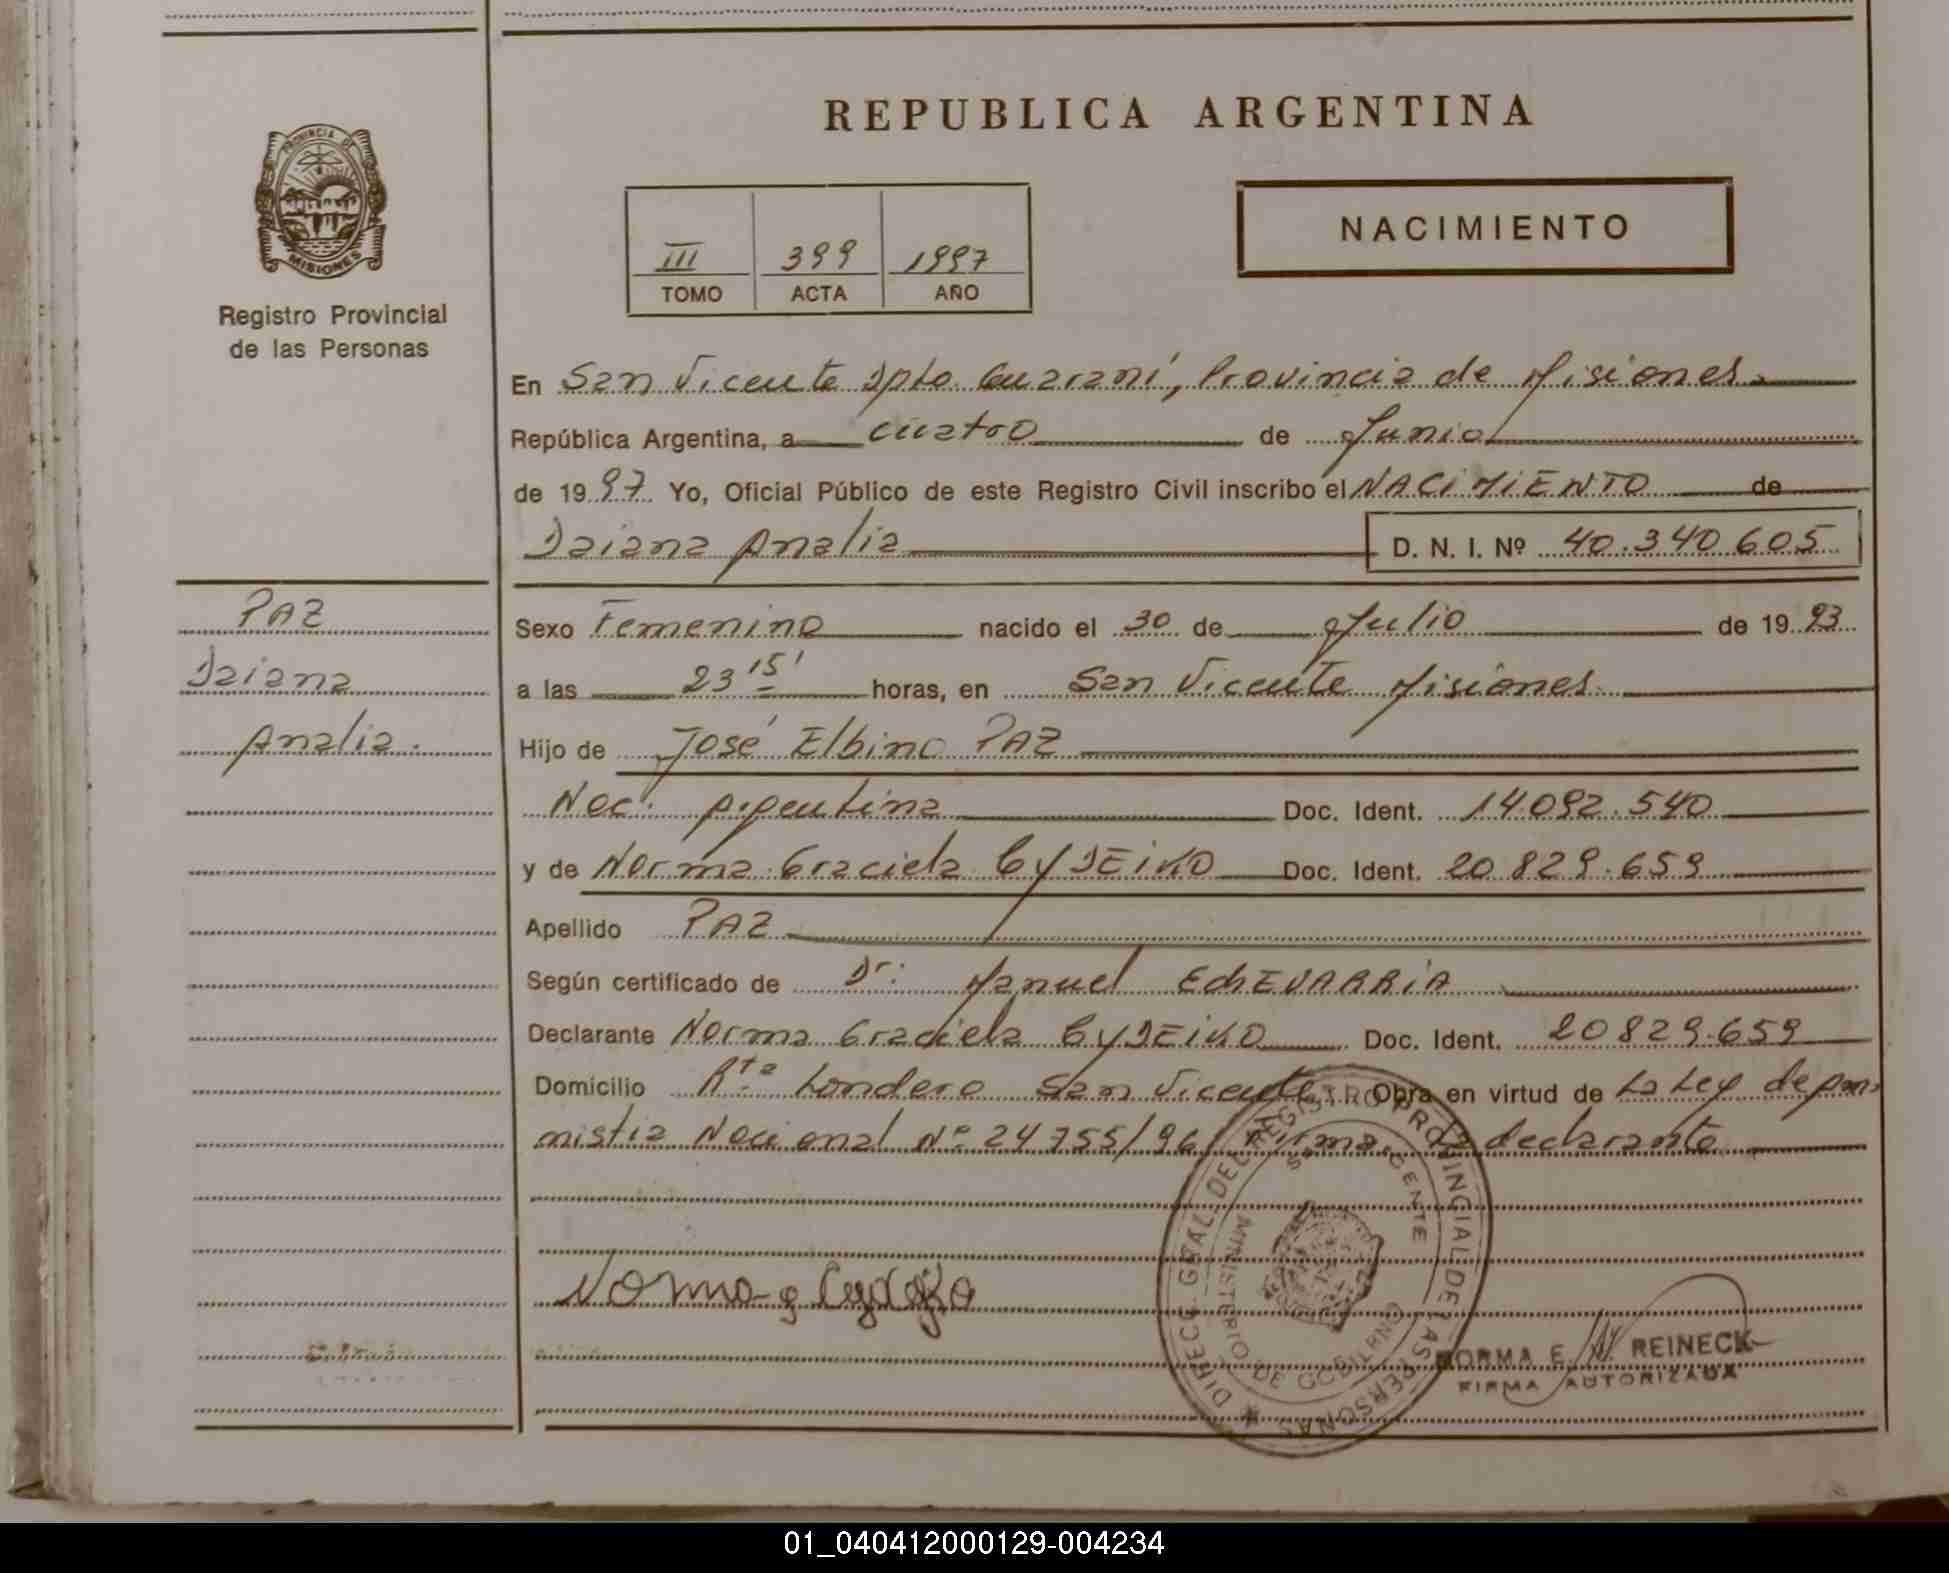 REPUBLICA ARGENTINA
PROVINCIA DE
MISIONES
Registro Provincial
de las Personas
NACIMIENTO
III 399 1997
TOMO ACTA AÑO
En San Vicente Dpto. Guaraní, Provincia de Misiones.
República Argentina, a cuatro de Junio
de 1997 Yo, Oficial Público de este Registro Civil inscribo el NACIMIENTO de
Daiana Analia D. N. I. Nº 40.340.605
PAZ
Daiana
Analia.
Sexo Femenino nacido el 30 de Julio de 1993
a las 23 15' horas, en San Vicente Misiones.
Hijo de José Elbino PAZ
Nac. Argentina Doc. Ident. 14.092.540
y de Norma Graciela CYDEIKO Doc. Ident. 20.829.659
Apellido PAZ
Según certificado de Dr. Manuel EchEVARRiA
Declarante Norma Graciela CYDEIKO Doc. Ident. 20829.659
Domicilio Rta Londero San Vicente. Obra en virtud de La Ley de Am
nistia Nacional Nº 24755/96 Firma La declarante
Norma g Cydeiko
DIRECC. GRAL. DEL REGISTRO PROVINCIAL DE LAS PERSONAS
MINISTERIO DE GOBIERNO
NORMA E. REINECK
FIRMA AUTORIZADA
01_040412000129-004234